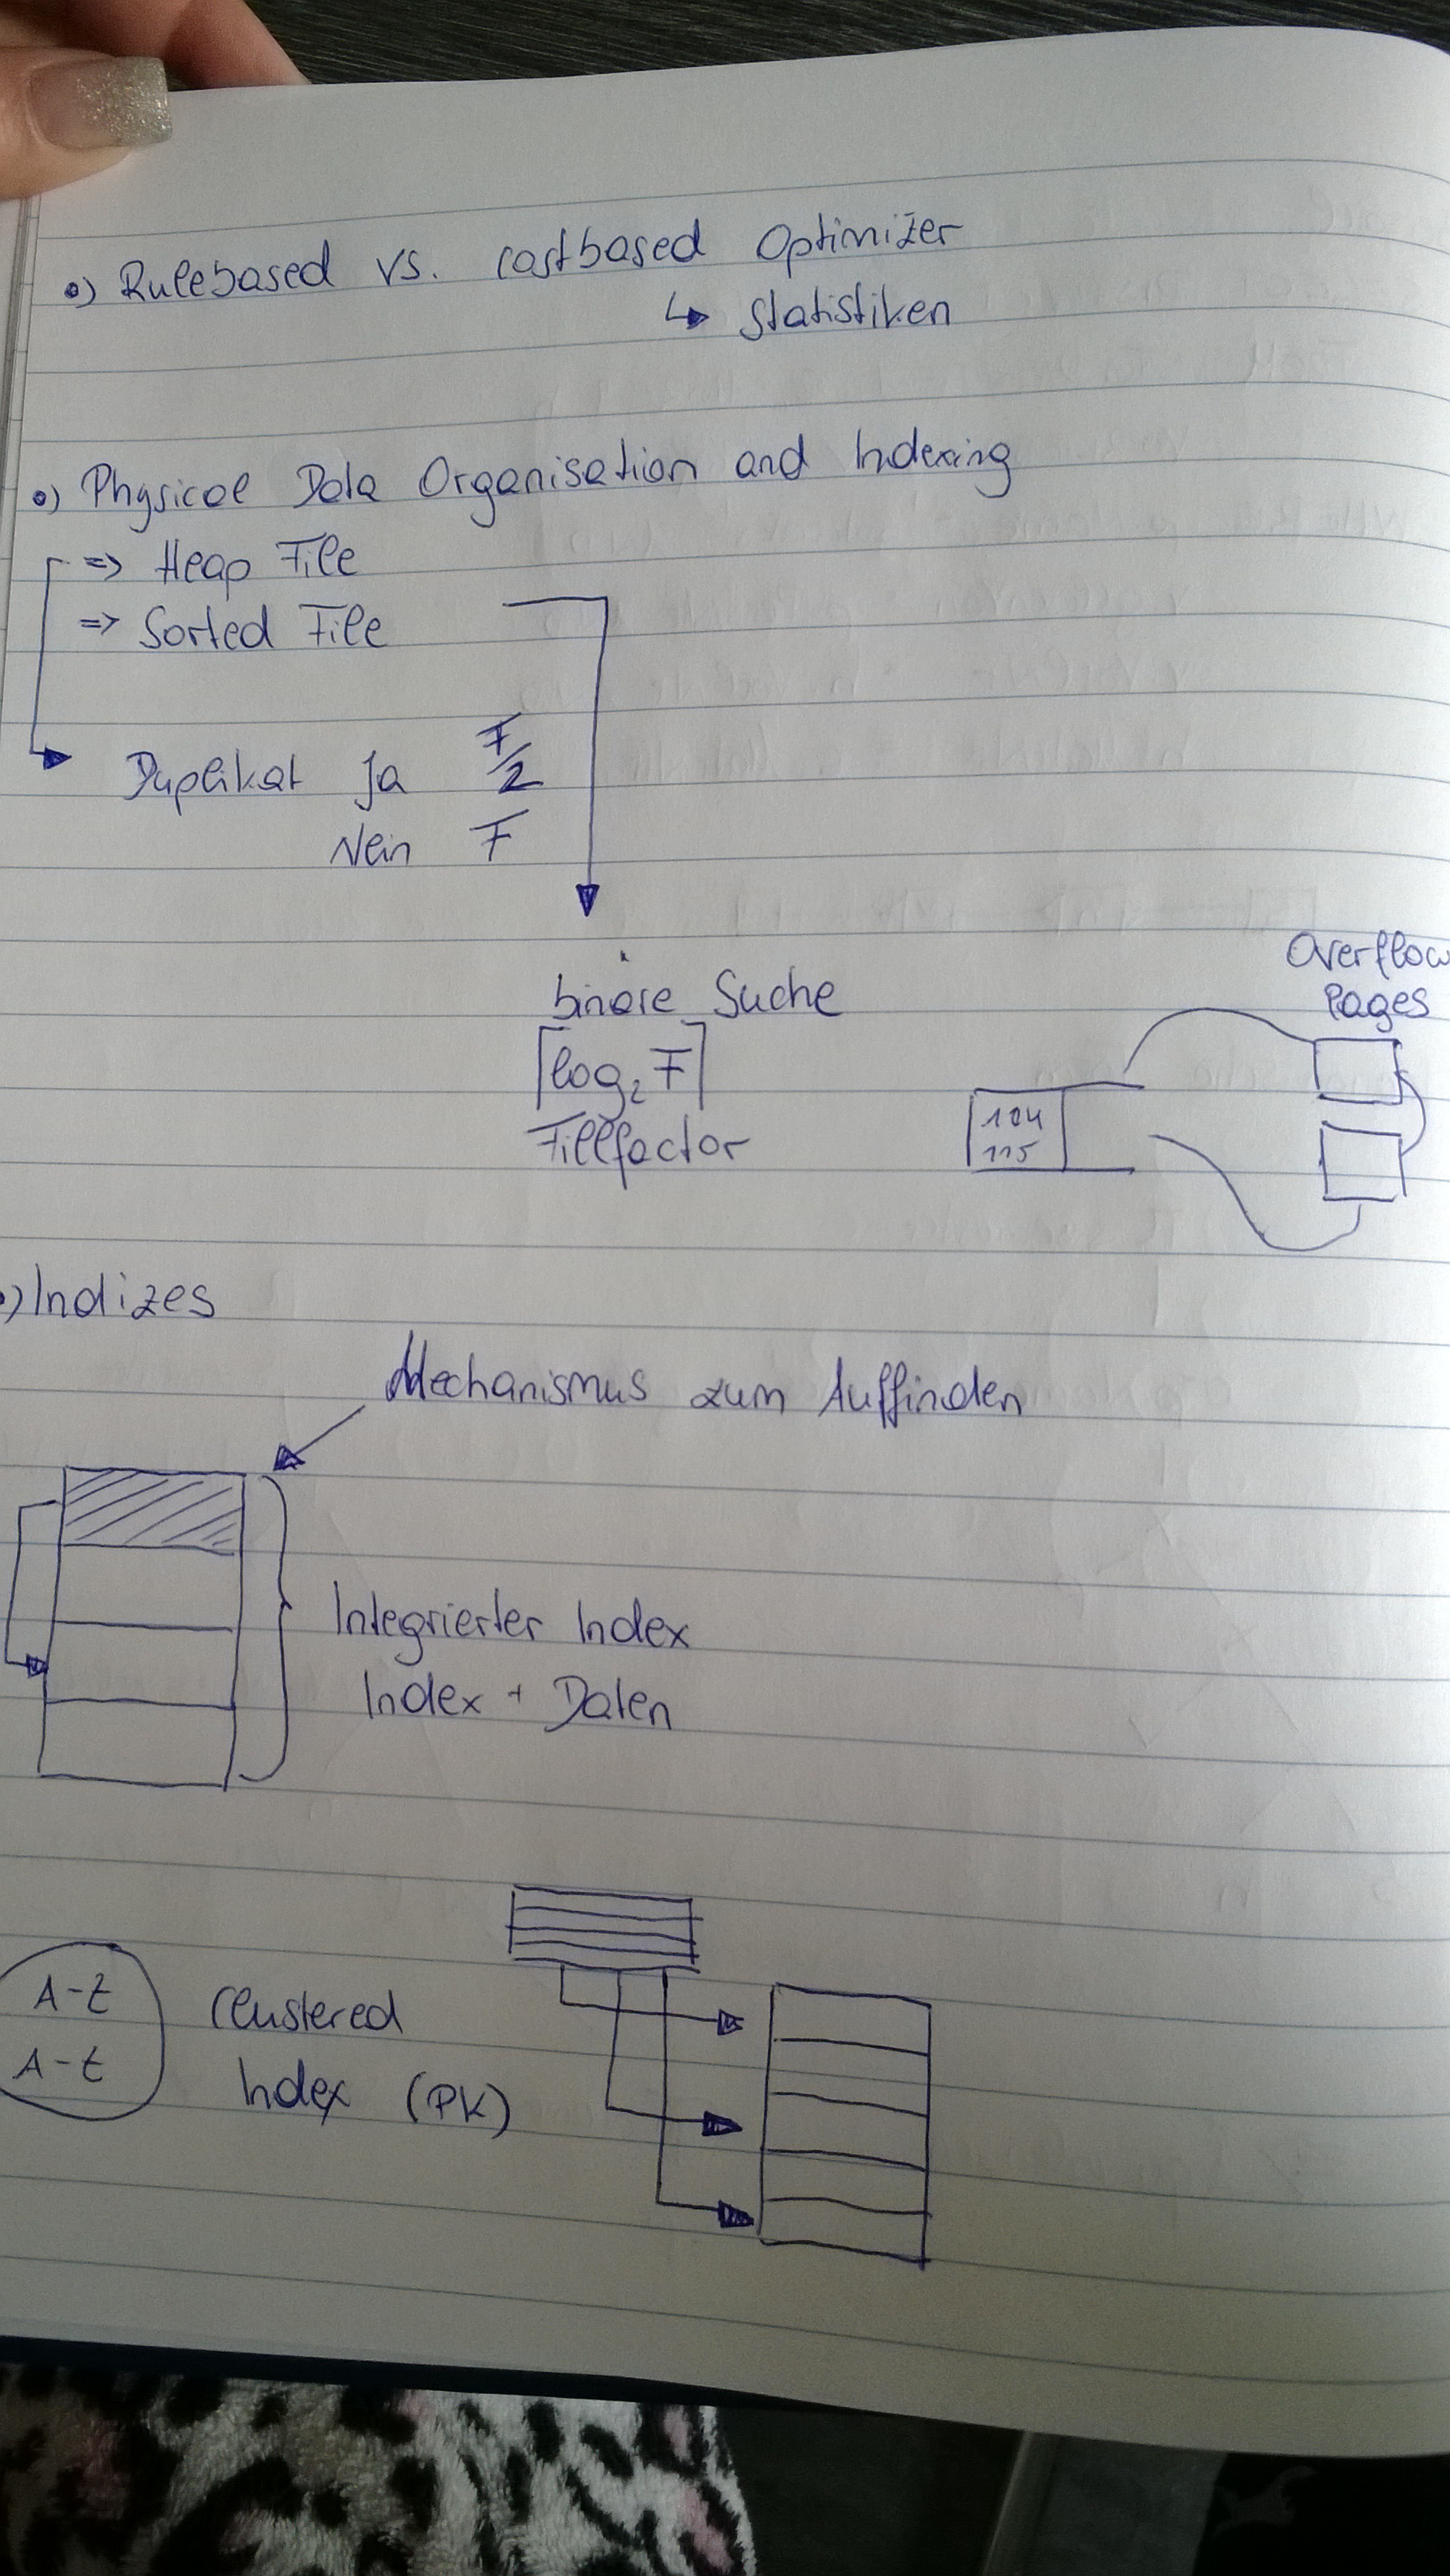 •) Rulebased vs. costbased Optimizer
↳ Statistiken
•) Physical Data Organisation and Indexing
=> Heap File
=> Sorted File
Duplikat Ja F/2
Nein F
Overflow
Pages
binäre Suche
⌈log₂ F⌉
104
Fillfactor
115
•) Indizes
Mechanismus zum Auffinden
Integrierter Index
Index + Daten
A-Z
Clustered
A-Z
Index (PK)